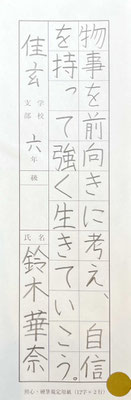 物事を前向きに考え、自信
を持って強く生きていこう。
学校
支部
佳玄
六年
級
氏名
鈴木華奈
用紙(12字×2行)